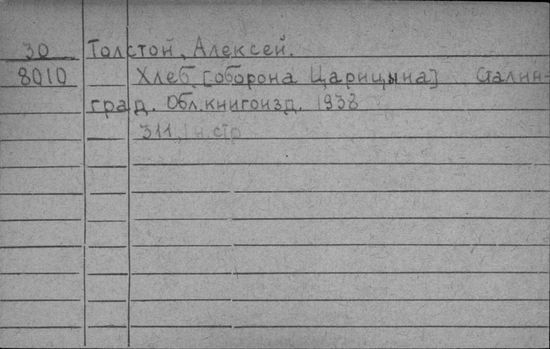 30 Толстой, Алексей.
8010 Хлеб [оборона Царицына] Сталин-
град. Обл.книгоизд. 1938
311, стр